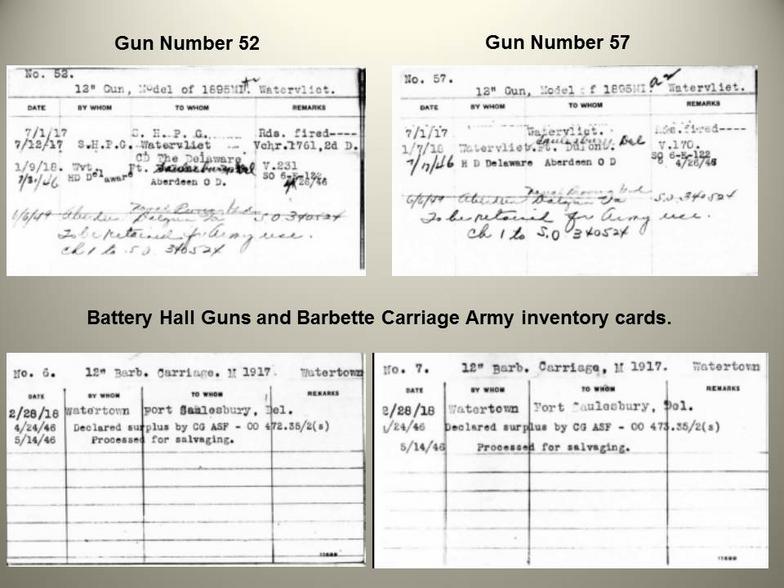 Gun Number 52
No. 52.
12" Gun, Model of 1895MI. Watervliet.
DATE BY WHOM TO WHOM REMARKS
7/1/17 S. H. P. G. Rds. fired----
7/12/17 S.H.P.G. Watervliet Vchr.1761,2d D.
CD The Delaware
1/9/18. Wvt. Ft. V.231
HD Delaware Aberdeen O D. SO 6-E-122
4/26/46
6/6/49 Aberdeen Naval Proving Grd.
Dalgren Va S.O 340524
To be retained for Army use.
Ch 1 to S.O 340524
Gun Number 57
No. 57.
12" Gun, Model of 1895MI. Watervliet.
DATE BY WHOM TO WHOM REMARKS
7/1/17 Watervliet. Rds.fired--
1/7/18 Watervliet. Ft. Dupont. Del V.170.
H D Delaware Aberdeen O D SO 6-E-122
4/26/46
6/6/49 Aberdeen Naval Proving Grd.
Dalgren Va S.O. 340524
To be retained for Army use.
Ch 1 to S.O 340524
Battery Hall Guns and Barbette Carriage Army inventory cards.
No. 6. 12" Barb. Carriage. M 1917. Watertown
DATE BY WHOM TO WHOM REMARKS
2/28/18 Watertown Fort Saulesbury, Del.
4/24/46 Declared surplus by CG ASF - 00 472.35/2(s)
5/14/46 Processed for salvaging.
No. 7. 12" Barb. Carriage, M 1917. Watertown
DATE BY WHOM TO WHOM REMARKS
2/28/18 Watertown Fort Saulesbury, Del.
/24/46 Declared surplus by CG ASF - 00 473.35/2(s)
5/14/46 Processed for salvaging.